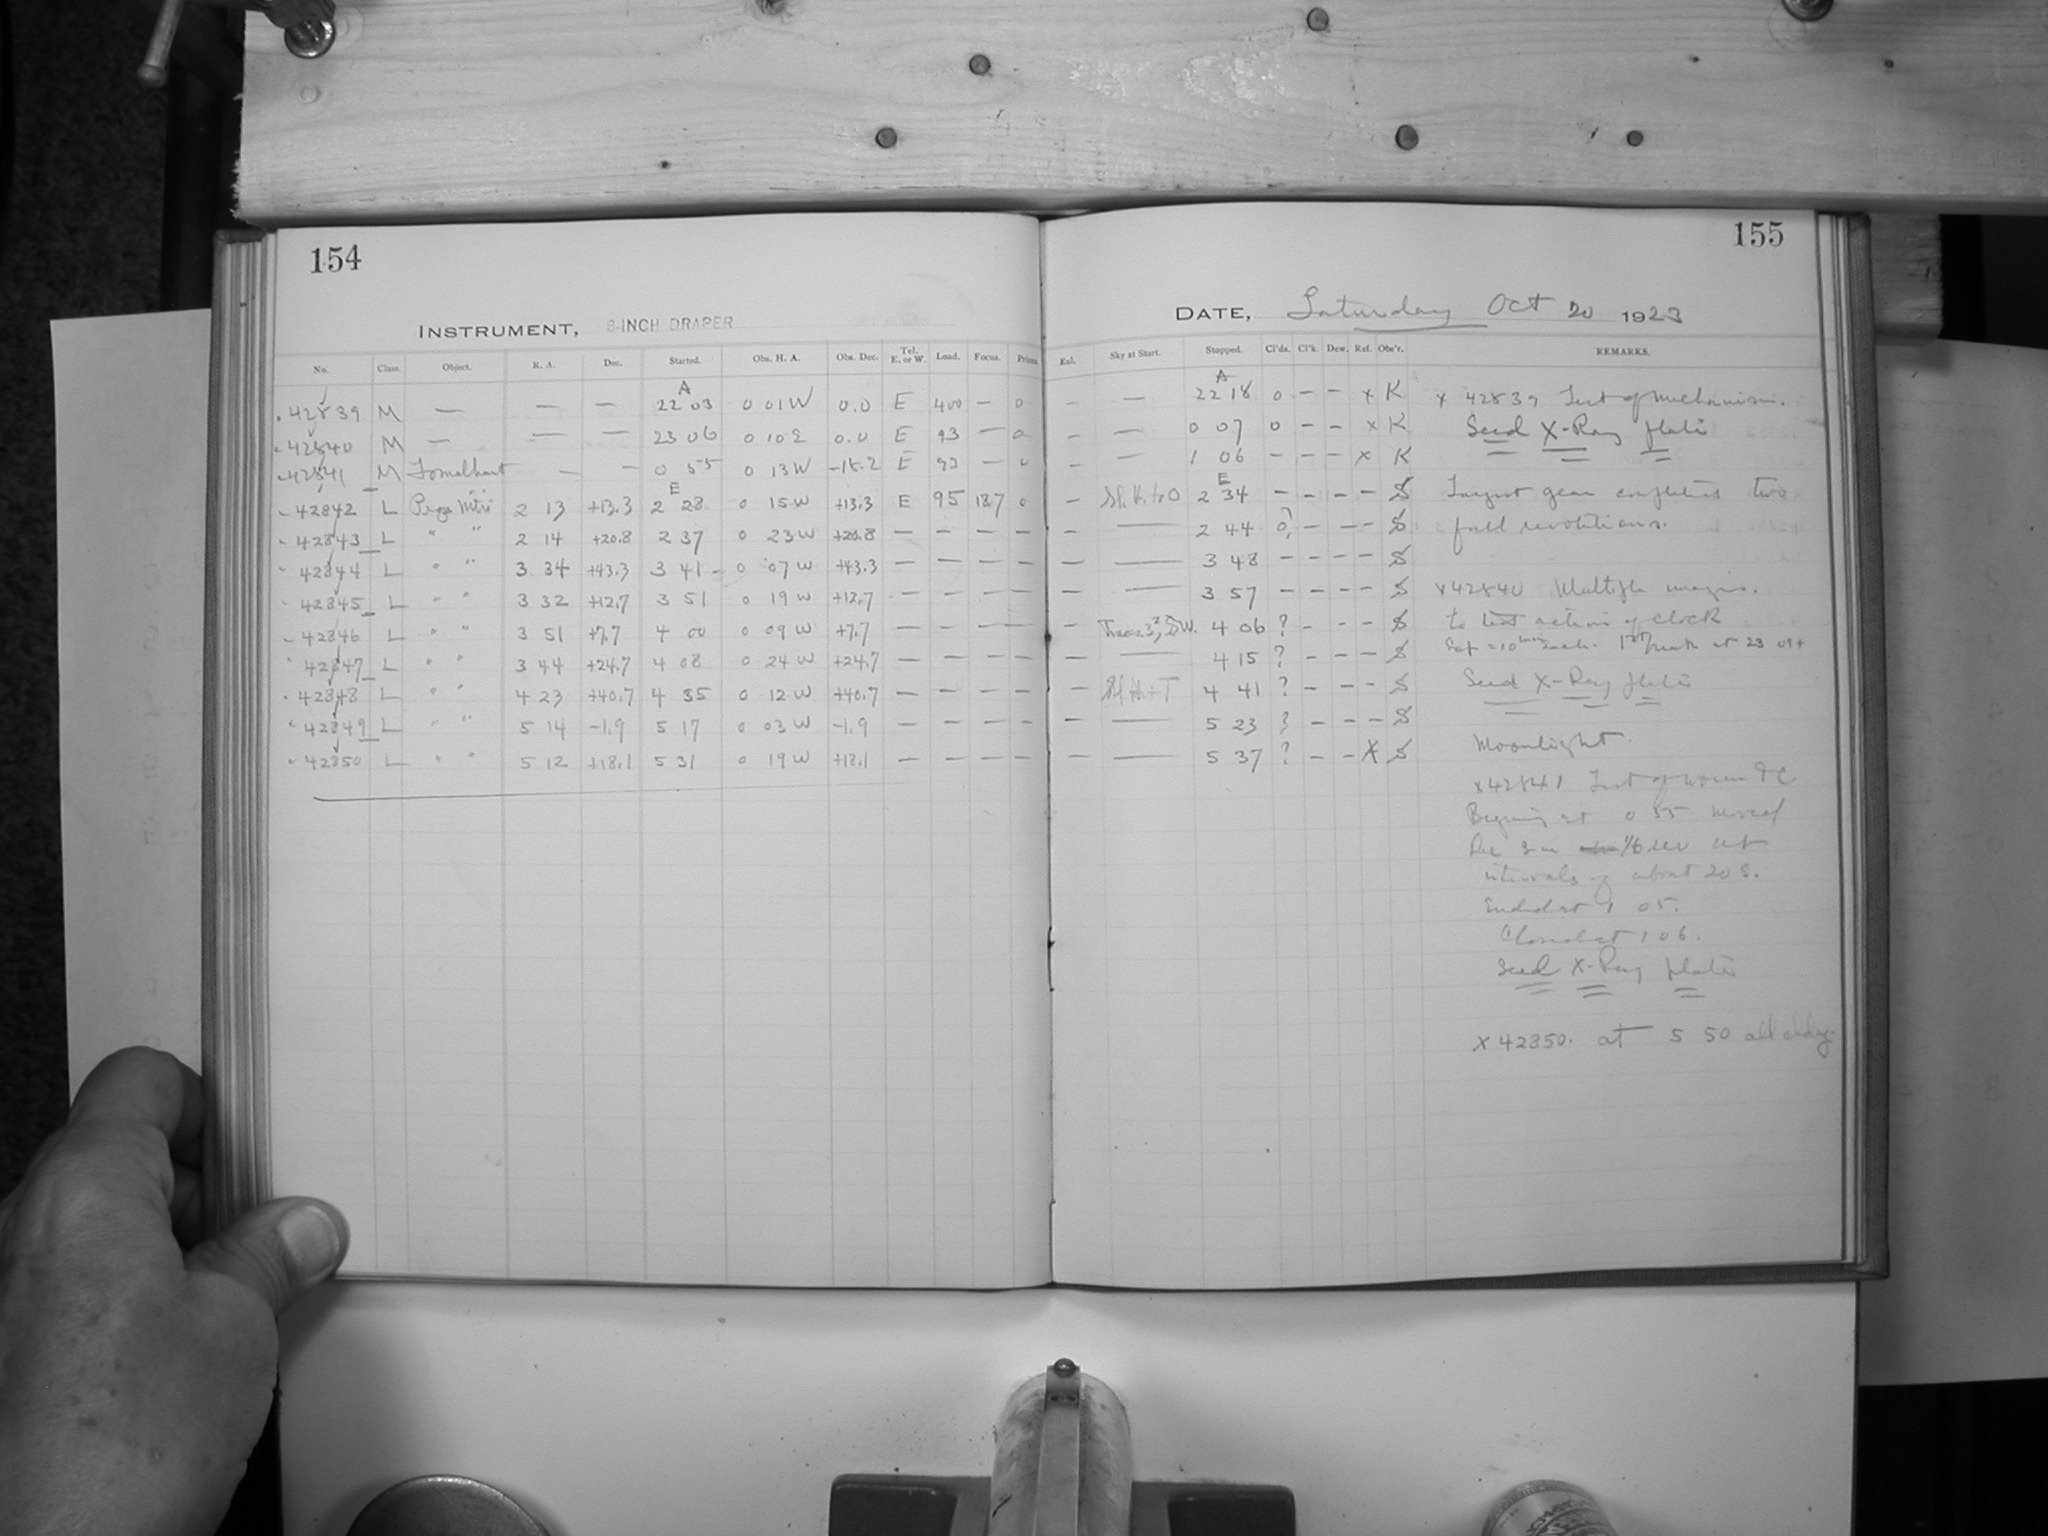 154
INSTRUMENT, 8-INCH DRAPER
No. Class. Object. R. A. Dec. Started. Obs. H. A. Obs. Dec. Tel. E. or W. Load. Focus. Prism
A
42839 M — — — 22 03 0 01 W 0.0 E 400 — 0
42840 M — — — 23 06 0 10 E 0.0 E 93 — 0
42841 M Fomalhaut — — 0 55 0 13 W E 93 — 0
E
42842 L 2 13 +13.3 2 28 0 15 W +13.3 E 95 18.7 0
42843 L " " 2 14 +20.8 2 37 0 23 W +20.8 — — — —
42844 L " " 3 34 +43.3 3 41 0 07 W +43.3 — — — —
42845 L " " 3 32 +12.7 3 51 0 19 W +12.7 — — — —
42846 L " " 3 51 +7.7 4 00 0 09 W +7.7 — — — —
42847 L " " 3 44 +24.7 4 08 0 24 W +24.7 — — — —
42848 L " " 4 23 +40.7 4 35 0 12 W +40.7 — — — —
42849 L " " 5 14 -1.9 5 17 0 03 W -1.9 — — — —
42850 L " " 5 12 +18.1 5 31 0 19 W +18.1 — — — —
155
DATE, Saturday Oct 20 1923
Sky at Start. Stopped. Cl'ds. Cl'k. Dew. Ref. Obs'r. REMARKS.
A
— — 22 18 0 — — x K
— — 0 07 0 — — x K
— — 1 06 — — — x K
E
— 2 34 — — — — S
— — 2 44 0? — — — S
— — 3 48 — — — — S
— — 3 57 — — — — S
— 4 06 ? — — — S
— — 4 15 ? — — — S
— 4 41 ? — — — S
— — 5 23 ? — — — S
— — 5 37 ? — — X S
x 42839 Test of mechanism.
Seed X-Ray plate
Largest gear completes two
full revolutions.
x42840 Multiple images.
to test action of clock
Seed X-Ray plate
Moonlight.
x42841 Test of
Beginning at 0 55 moved
Dec 1/6 rev at
intervals of about 20 s.
Ended at 1 05.
Closed at 1 06.
Seed X-Ray plate
x 42850. at 5 50 all cloudy.